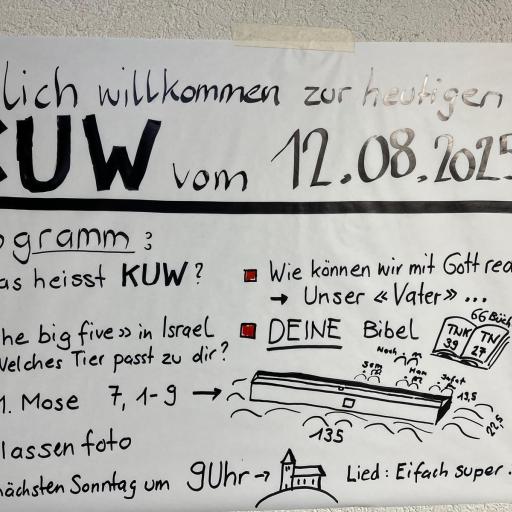 lich willkommen zur heutigen
KUW vom 12.08.2025
ogramm :
as heisst KUW ?
he big five » in Israel
Welches Tier passt zu dir ?
1. Mose 7, 1-9 →
lassenfoto
nächsten Sonntag um 9 Uhr →
Wie können wir mit Gott red
→ Unser « Vater » ...
DEINE Bibel
66 Büch
TNK 39
TN 27
Noah
Sem
Ham
Jafet
13,5
22,5
135
Lied : Eifach super.